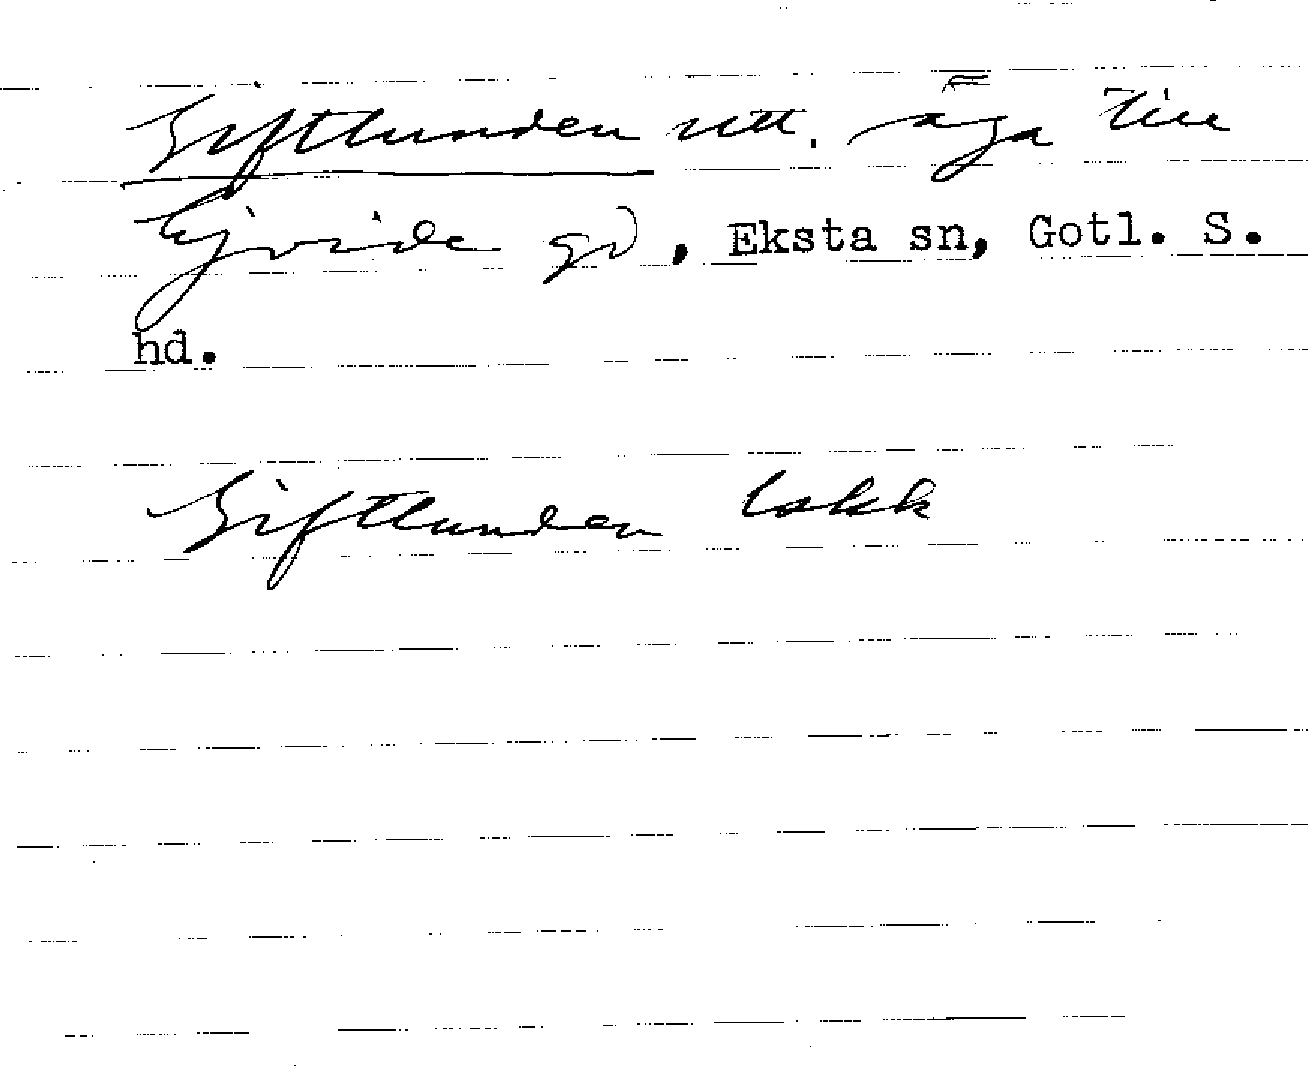 Giftlunden utt. äga till
Ajvide gd, Eksta sn, Gotl. S.
hd.
Giftlunden lokk